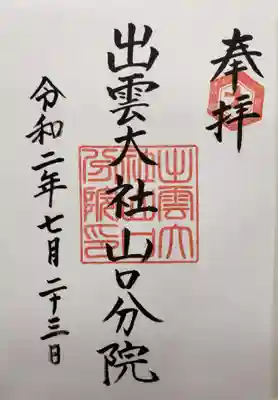 奉拝
出雲大社山口分院
令和二年七月二十三日
出雲大
社山口
分院印